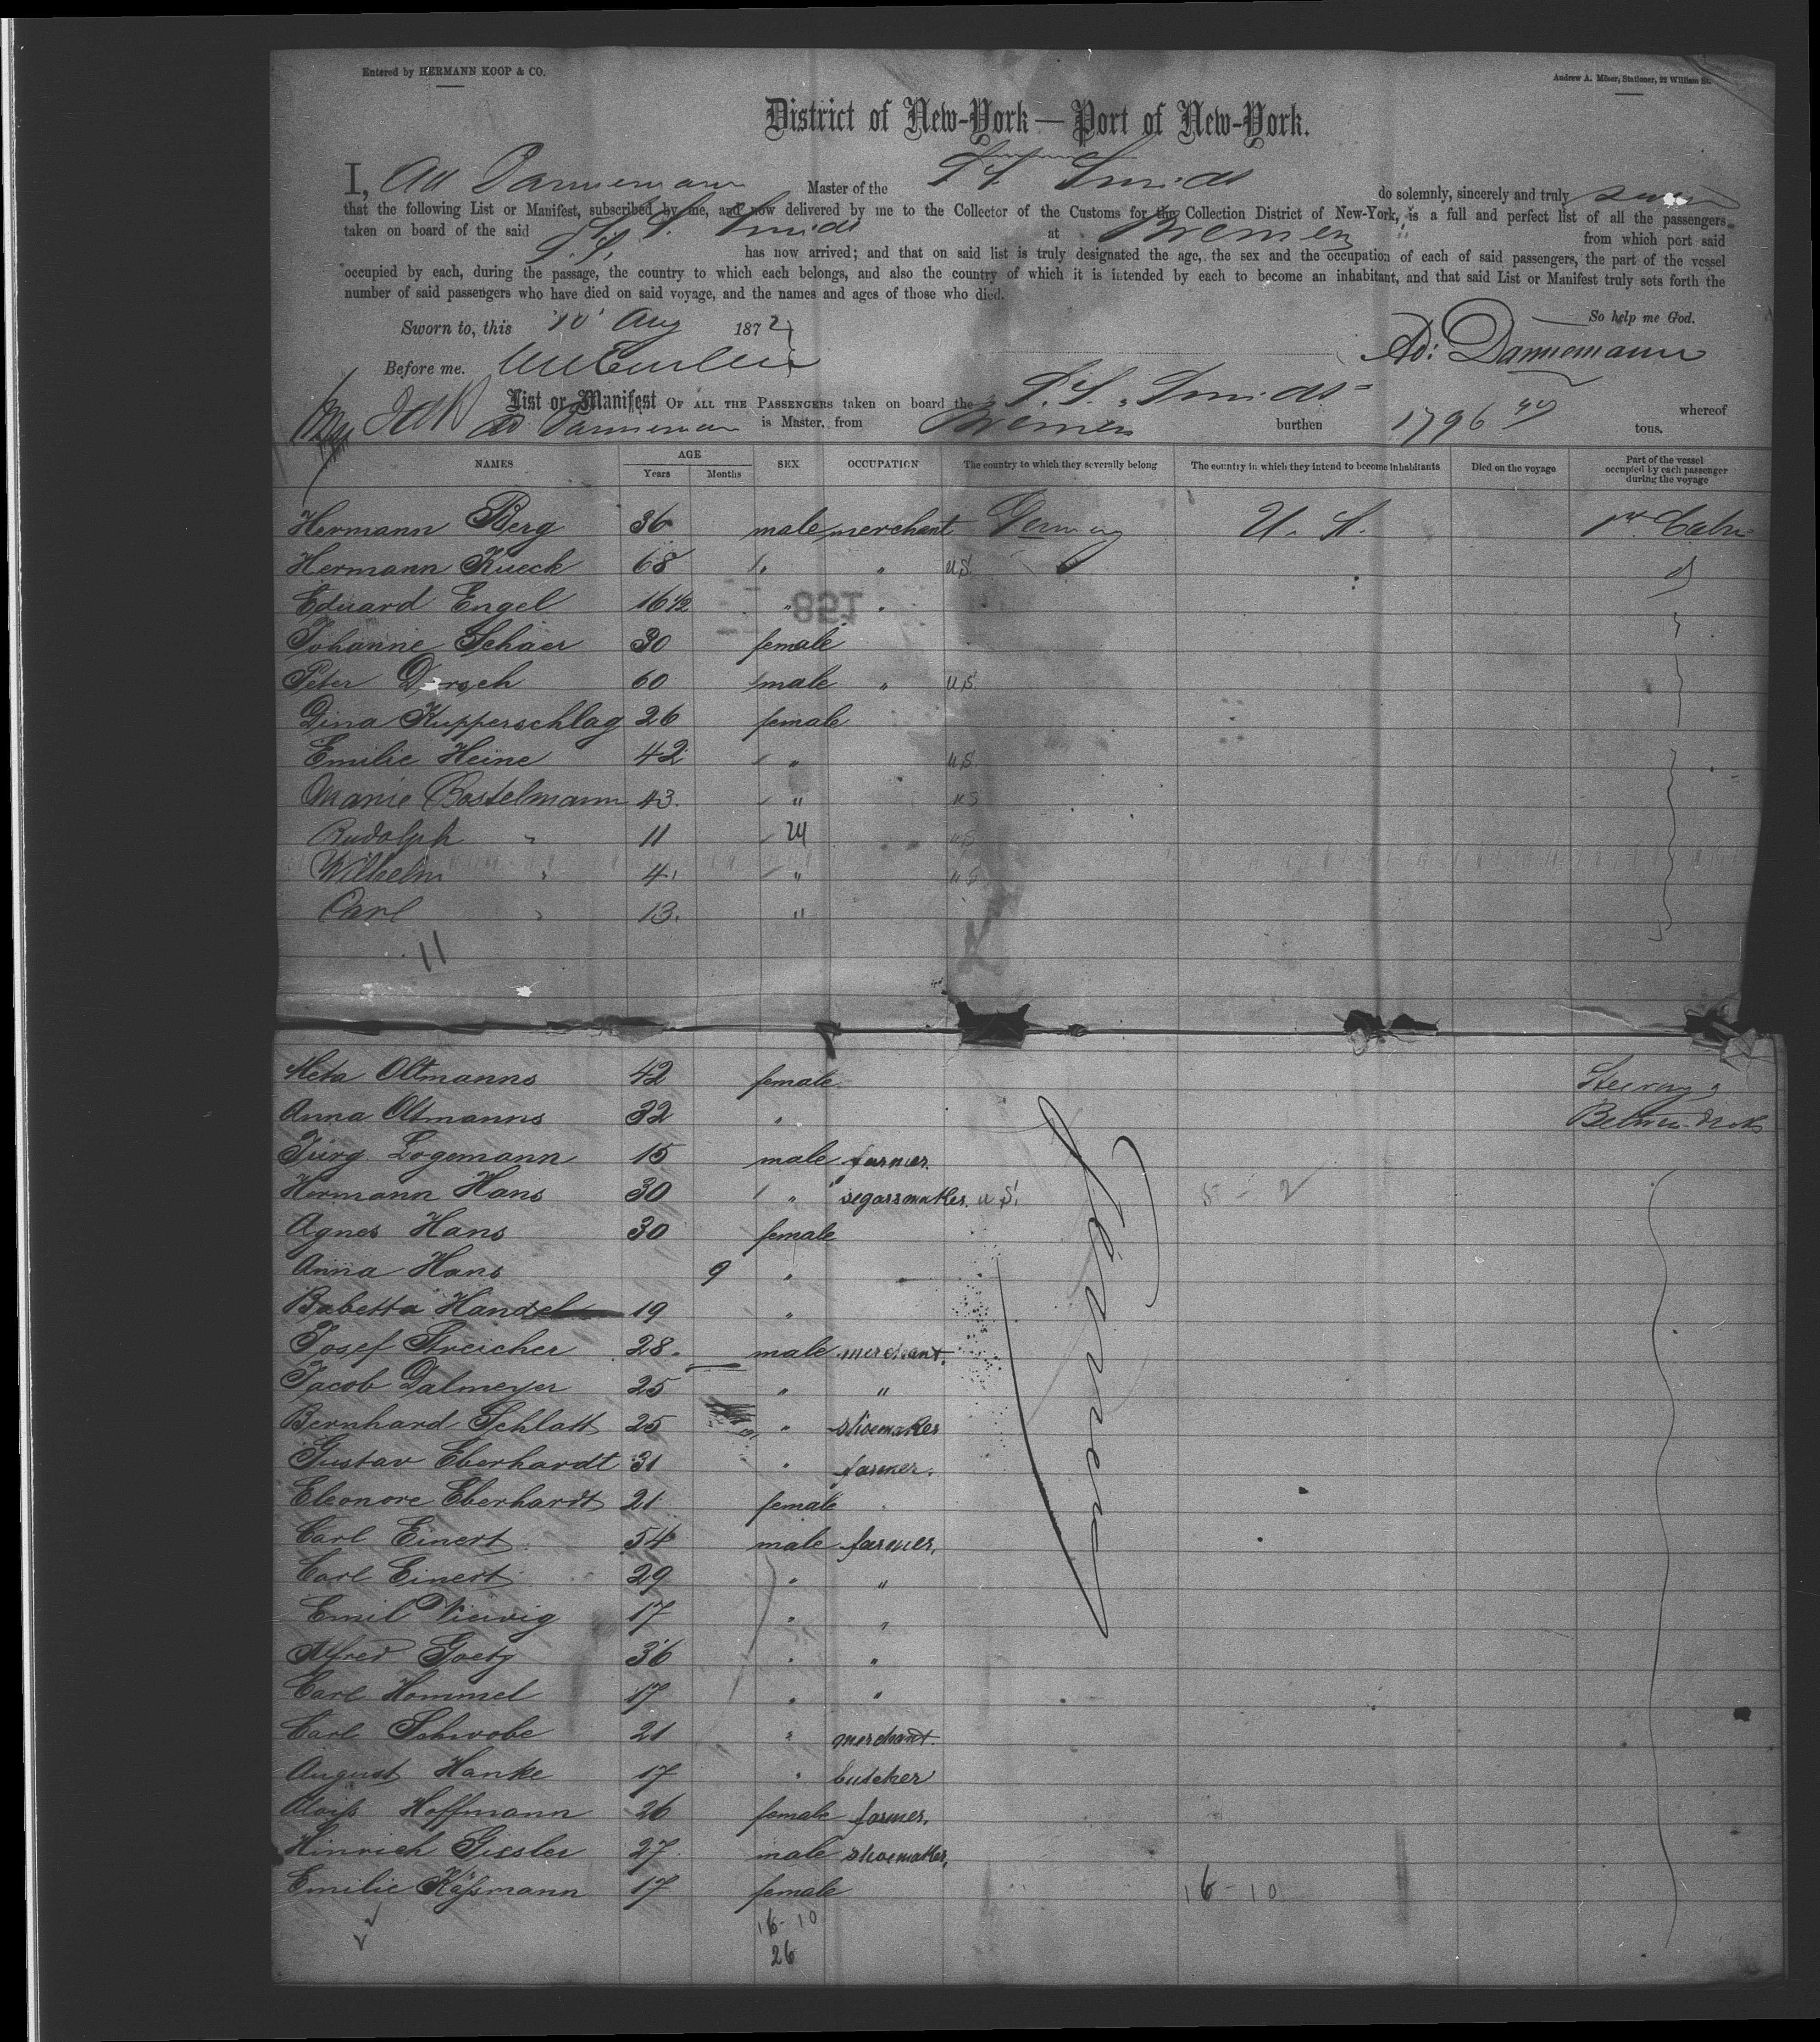 Entered by HERMANN KOOP & CO.
Andrew A. Möser, Stationer, 22 William St.
District of New-York — Port of New-York.
I, Ad Dannemann Master of the S.S. Smidt do solemnly, sincerely and truly swear
that the following List or Manifest, subscribed by me, and now delivered by me to the Collector of the Customs for the Collection District of New-York, is a full and perfect list of all the passengers
taken on board of the said S.S. Smidt at Bremen from which port said
S.S. has now arrived; and that on said list is truly designated the age, the sex and the occupation of each of said passengers, the part of the vessel
occupied by each, during the passage, the country to which each belongs, and also the country of which it is intended by each to become an inhabitant, and that said List or Manifest truly sets forth the
number of said passengers who have died on said voyage, and the names and ages of those who died.
So help me God.
Sworn to, this 10 Aug 1872
Ad: Dannemann
Before me.
List or Manifest OF ALL THE PASSENGERS taken on board the S.S. Smidt whereof
Ad Dannemann is Master, from Bremen burthen 1796 tons.
NAMES AGE Years Months SEX OCCUPATION The country to which they severally belong The country in which they intend to become inhabitants Died on the voyage Part of the vessel occupied by each passenger during the voyage
Hermann Berg 36 male merchant Germany U. S. 1st Cabin
Hermann Kueck 68 " " U.S.
Eduard Engel 16 1/2 " "
851
Johanne Schaer 30 female
Peter Dorsch 60 male " U.S.
Dina Kupperschlag 26 female
Emilie Heine 42 " U.S.
Marie Bostelmann 43. " U.S.
Rudolph " 11 M U.S.
Wilhelm " 4 " U.S.
Carl " 13. "
11
Meta Oltmanns 42 female Steerage
Anna Oltmanns 32 " Between Decks
Jürg Logemann 15 male farmer.
Hermann Hans 30 " segarsmaker. U.S. 5 - 2
Agnes Hans 30 female
Anna Hans 9 "
Babetta Handel 19 "
Josef Streicher 28. male merchant.
Jacob Dalmeyer 25 " "
Bernhard Schlatt 25 " shoemaker
Gustav Eberhardt 31 " farmer.
Eleonore Eberhardt 21 female
Germany
Carl Einert 54 male farmer.
Carl Einert 29 " "
Emil Viewig 17 " "
Alfred Goetz 36 " "
Carl Hommel 17 " "
Carl Schwobe 21 " merchant.
August Hanke 17 " butcher
Aloiß Hoffmann 26 female farmer.
Hinrich Gissler 27. male shoemaker.
Emilie Käßmann 17 female 16 - 10
16 - 10
26